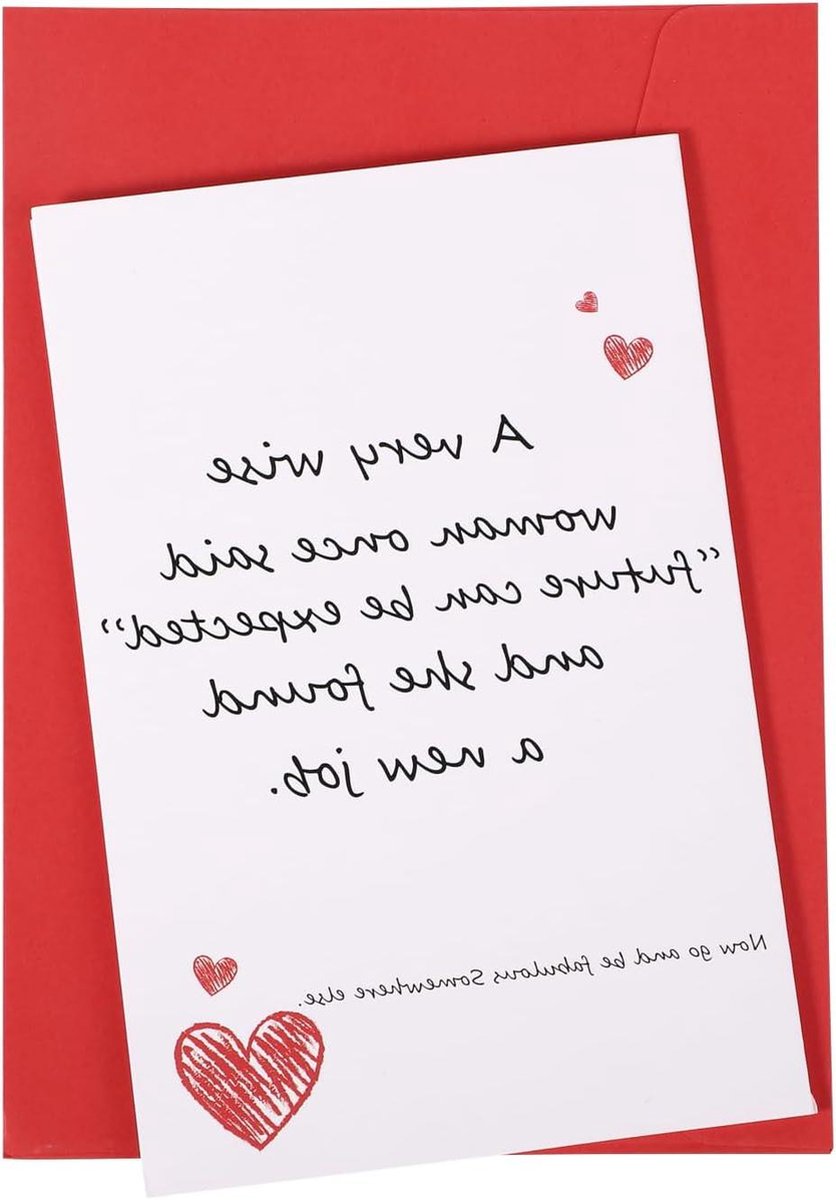 A very wise
woman once said
“future can be expected”
and she found
a new job.
Now go and be fabulous Somewhere else.